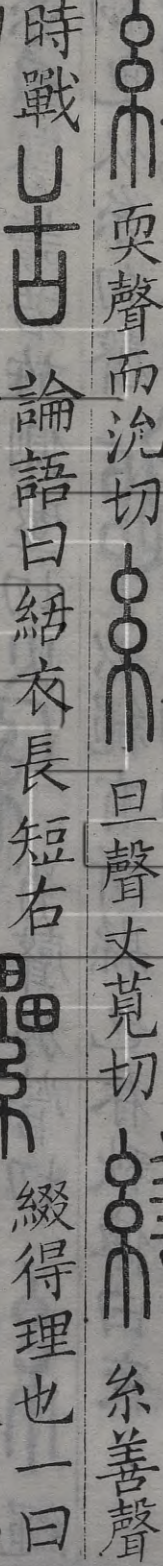 耎聲而沇切 旦聲丈莧切 糸善聲
時戰 論語曰結衣長短右 綴得理也一曰